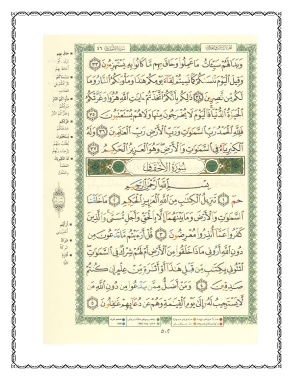 وَبَدَا لَهُمْ سَيِّئَاتُ مَا عَمِلُوا وَحَاقَ بِهِم مَّا كَانُوا بِهِ يَسْتَهْزِءُونَ ٣٣
وَقِيلَ الْيَوْمَ نَنسَاكُمْ كَمَا نَسِيتُمْ لِقَاءَ يَوْمِكُمْ هَذَا وَمَأْوَاكُمُ النَّارُ وَمَا
لَكُم مِّن نَّاصِرِينَ ٣٤ ذَلِكُم بِأَنَّكُمُ اتَّخَذْتُمْ آيَاتِ اللَّهِ هُزُوًا وَغَرَّتْكُمُ
الْحَيَاةُ الدُّنْيَا فَالْيَوْمَ لَا يُخْرَجُونَ مِنْهَا وَلَا هُمْ يُسْتَعْتَبُونَ ٣٥
فَلِلَّهِ الْحَمْدُ رَبِّ السَّمَاوَاتِ وَرَبِّ الْأَرْضِ رَبِّ الْعَالَمِينَ ٣٦ وَلَهُ
الْكِبْرِيَاءُ فِي السَّمَاوَاتِ وَالْأَرْضِ وَهُوَ الْعَزِيزُ الْحَكِيمُ ٣٧
سُورَةُ الْأَحْقَافِ
بِسْمِ اللَّهِ الرَّحْمَنِ الرَّحِيمِ
حم ١ تَنزِيلُ الْكِتَابِ مِنَ اللَّهِ الْعَزِيزِ الْحَكِيمِ ٢ مَا خَلَقْنَا
السَّمَاوَاتِ وَالْأَرْضَ وَمَا بَيْنَهُمَا إِلَّا بِالْحَقِّ وَأَجَلٍ مُّسَمًّى وَالَّذِينَ
كَفَرُوا عَمَّا أُنذِرُوا مُعْرِضُونَ ٣ قُلْ أَرَأَيْتُم مَّا تَدْعُونَ مِن
دُونِ اللَّهِ أَرُونِي مَاذَا خَلَقُوا مِنَ الْأَرْضِ أَمْ لَهُمْ شِرْكٌ فِي السَّمَاوَاتِ
ائْتُونِي بِكِتَابٍ مِّن قَبْلِ هَذَا أَوْ أَثَارَةٍ مِّنْ عِلْمٍ إِن كُنتُمْ
صَادِقِينَ ٤ وَمَنْ أَضَلُّ مِمَّن يَدْعُو مِن دُونِ اللَّهِ مَن
لَّا يَسْتَجِيبُ لَهُ إِلَى يَوْمِ الْقِيَامَةِ وَهُمْ عَن دُعَائِهِمْ غَافِلُونَ ٥
٥٠٢